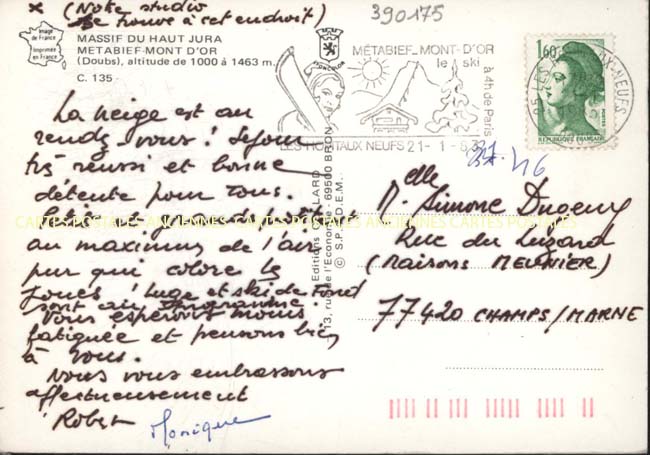 * (Notre studio
se trouve à cet endroit)
390175
Image
de France
Imprimée
en France
MASSIF DU HAUT JURA
METABIEF-MONT D'OR
(Doubs), altitude de 1000 à 1463 m.
C. 135 -
MÉTABIEF_MONT-D'OR
le ski
à 4h de Paris
LES HOPITAUX NEUFS 21-1-
1,60
POSTES
REPUBLIQUE FRANÇAISE
La neige est au
rendez-vous! Séjour
très réussi et bonne
détente pour tous.
au maximum de l'air
pur qui colore les
joues! Luge et ski de Fond
sont au programme.
Vous espérons moins
fatiguée et pensons bien
à vous.
Nous vous embrassons
affectueusement
Robert Monique
Editions
13, rue de l'Economie - 69500 BRON
© S.P.A.D.E.M.
CARTES POSTALES ANCIENNES CARTES POSTALES ANCIENNES CARTES POSTALES
elle
Simone
Rue du Luzard
(Maisons MEUNIER)
77420 CHAMPS/MARNE